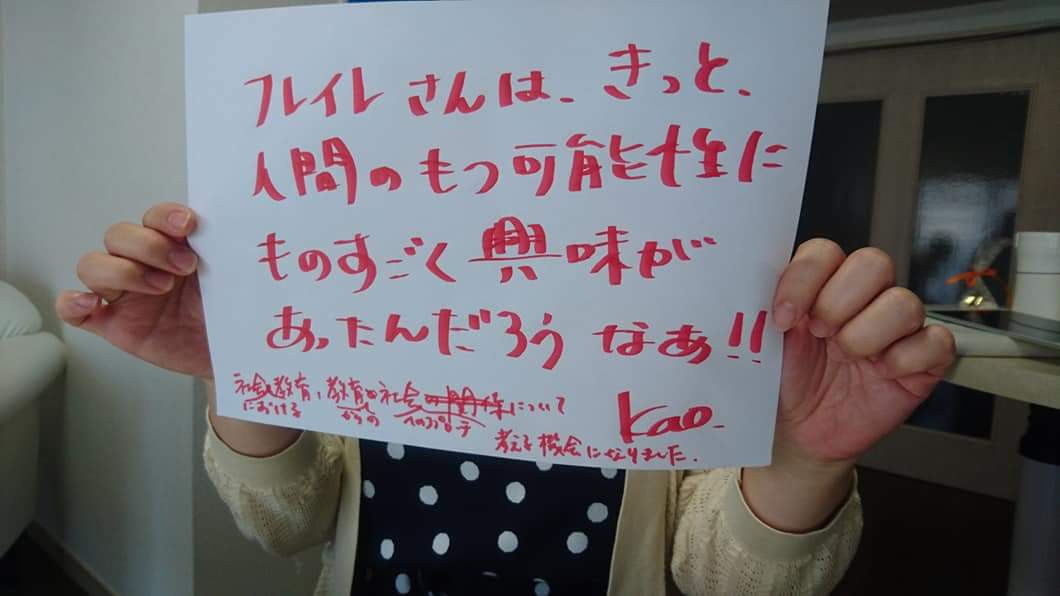 フレイレさんは、きっと、
人間のもつ可能性に
ものすごく興味が
あったんだろうなぁ!!
Kao.
社会と教育、教育と社会の関係について
における からの へのアプローチ
考える機会になりました.